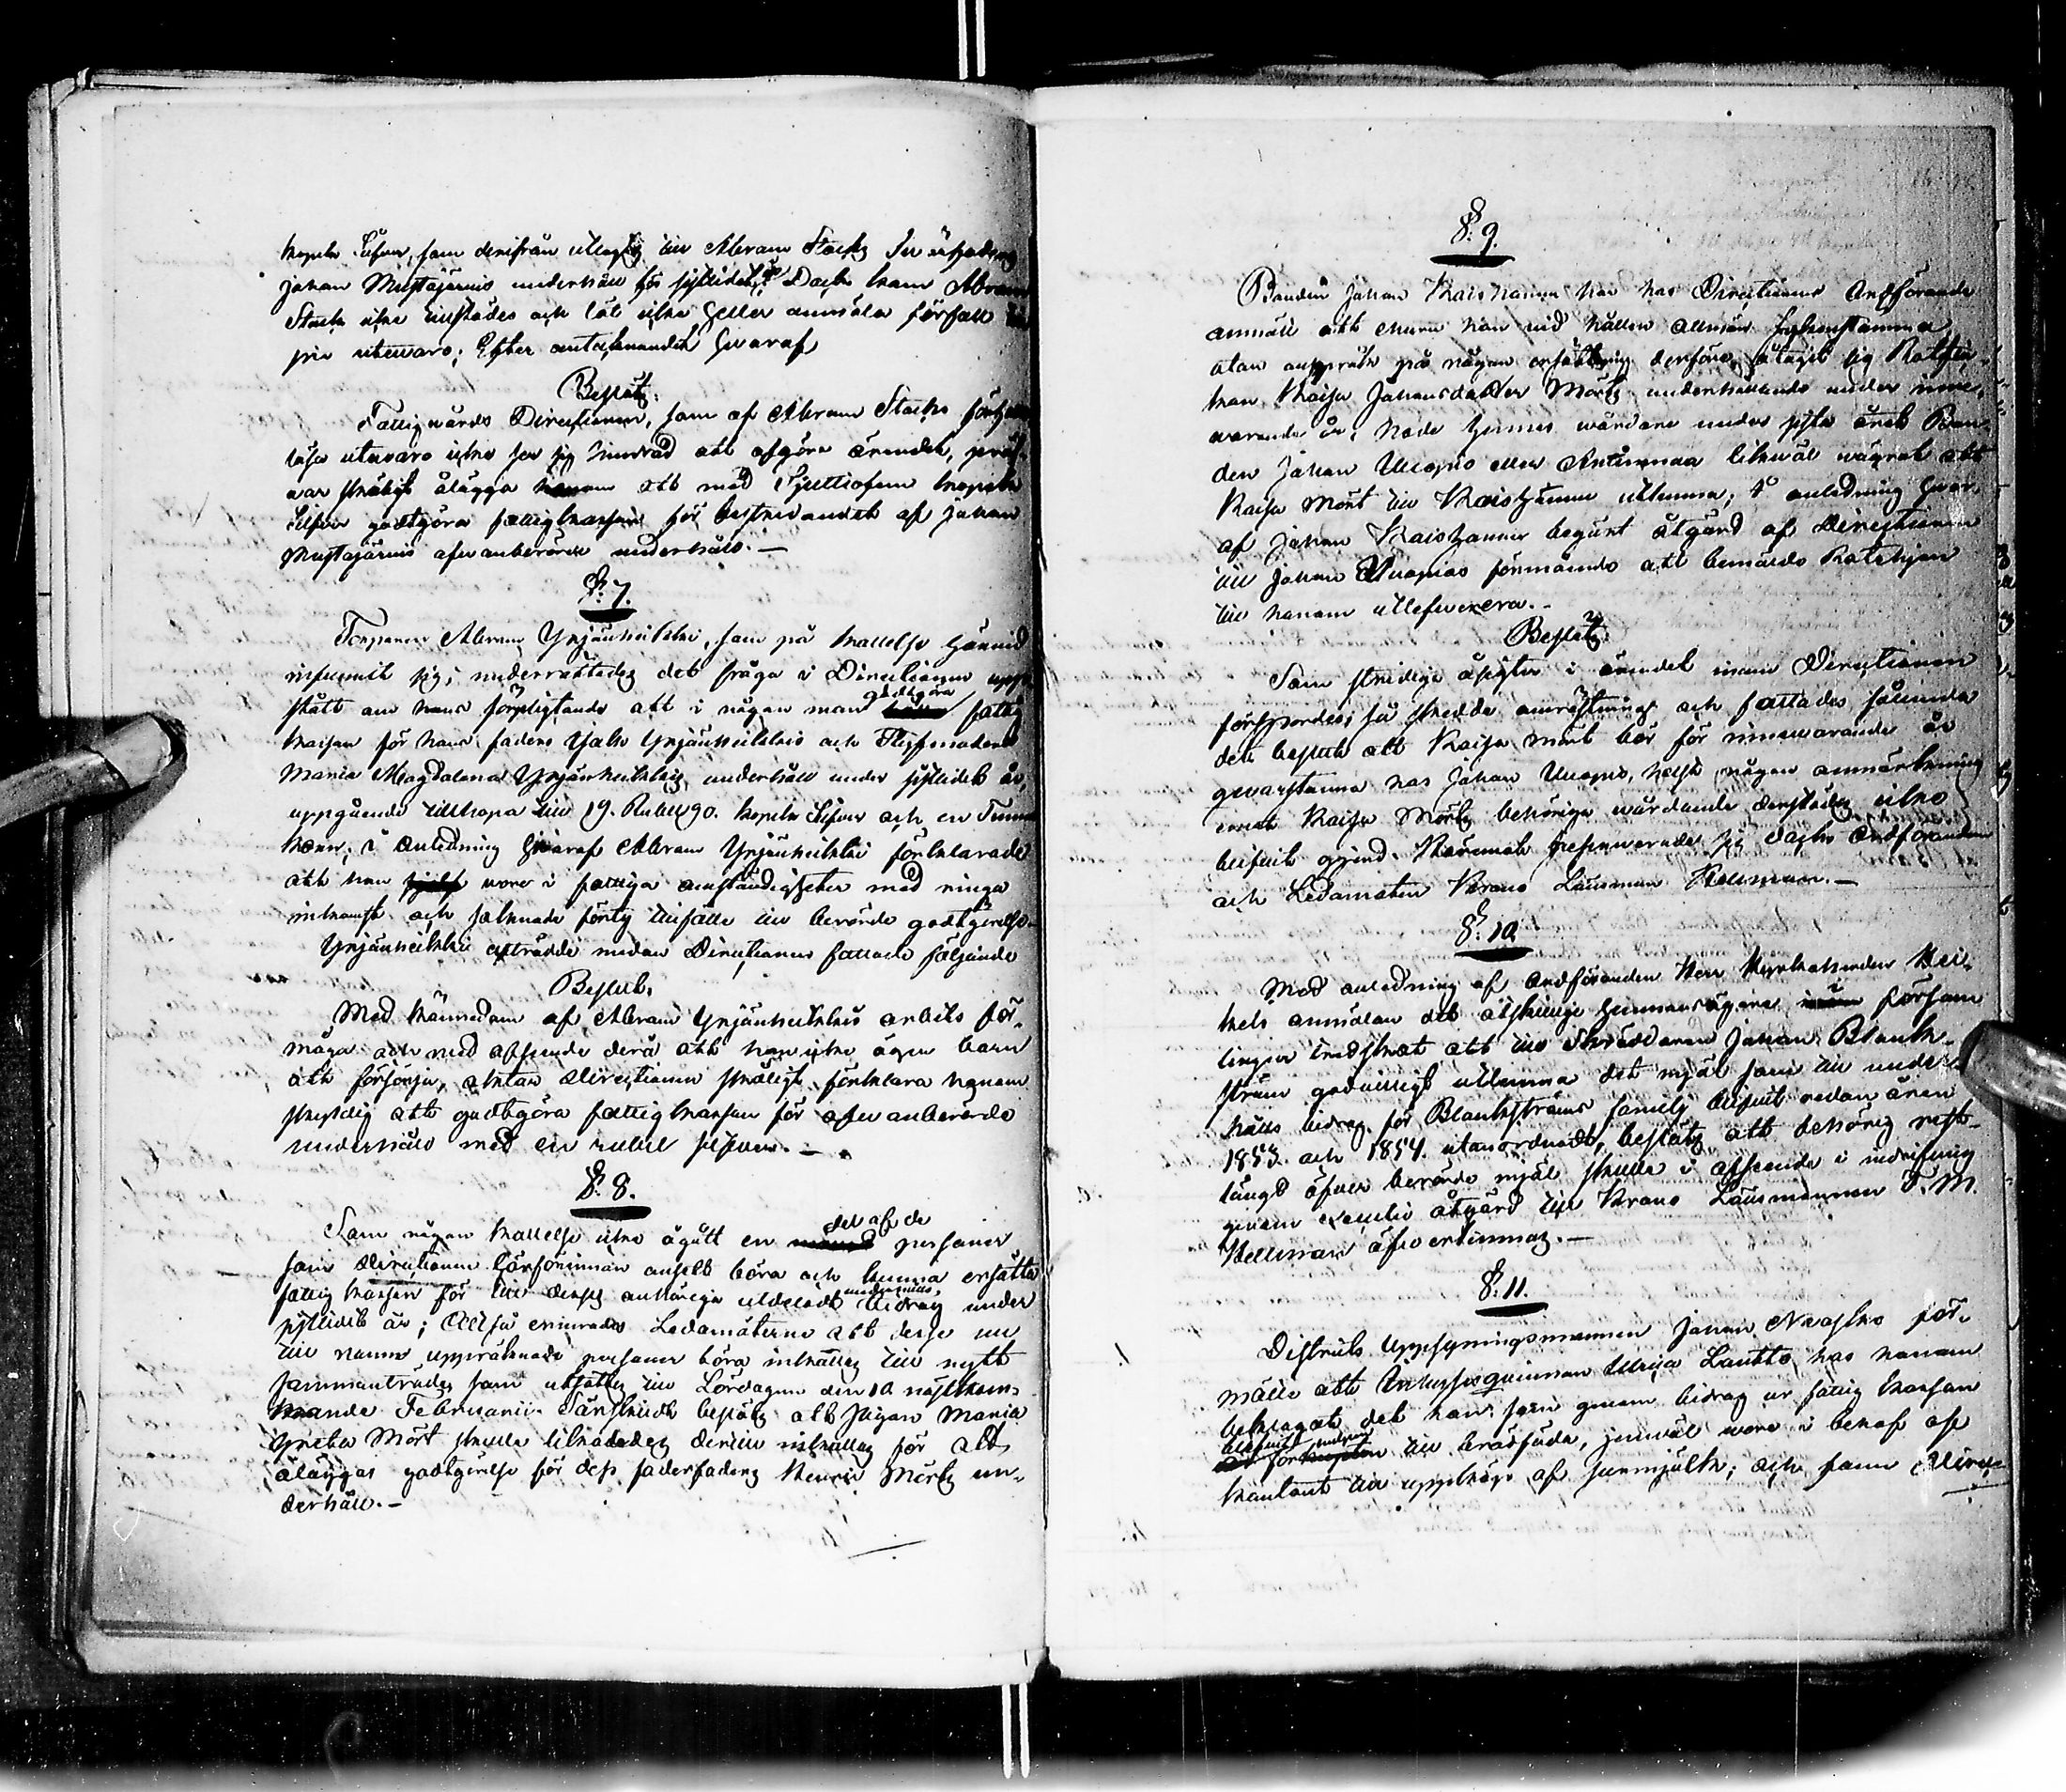 kopek Silfver, som derifrån utlagts till Abram Stacks
Johan Mustajärvis underhåll för sistlidet år. Dock kom Abram
Stack icke tillstädes och lät icke heller anmäla förfall
sin utewaro; Efter antecknandet hvaraf
Beslöts.
Fattigvårds Directionen, som af Abram Stacks
lösa utewaro icke ser sig hindrad att afgöra ärendet, pröf-
var skäligt ålägga honom att med Sjuttiofem kopek
Silfver godtgöra fattigkassan för bestridandet af Johan
Mustajärvis ofvanberörde underhåll.—
§. 7.
Torparen Abram Yrjänheikki, som på kallelse härvid
infunnit sig, underrättades det fråga i Directionen upp-
stått om hans förpligtande att i någon mån godtgöra fattig
kassan för hans faders Jakob Yrjänheikkis och Styfmoders
Maria Magdalena Yrjänheikkis underhåll under sistlidet år,
uppgående tillhopa till 19. Rubel 90. kopek Silfver och en Tunna
korn; i anledning hvaraf Abram Yrjänheikki förklarade
att han sjelf vore i fattiga omständigheter med ringa
inkomst och saknade förty tillfälle till berörde godtgörelse.
Yrjänheikki afträdde medan Directionen fattade följande
Beslut.
Med kännedom af Abram Yrjänheikkis arbets för-
måga och med afseende derå att han icke ägen barn
att försörja, aktar Directionen skäligt förklara honom
skyldig att godtgöra fattigkassan för ofvanberörde
underhåll med en rubel silfver.—
§. 8.
Som någon kallelse icke ågått en del af de personer
som Directionen härförinnan ansett böra och kunna ersätta
fattig kassan för till deras anhöriga utdeladt underhålls bidrag under
sistlidet år; Alltså erinrades Ledamöterne att desse nu
till namn uppräknade personer böra inkallas till nytt
sammanträde, som utsattes till Lördagen den 10 nästkom-
mande Februarii. Särskildt beslöts att pigan Maria
Greta Mört skulle likaledes dertill inkallas för att
åläggas godtgörelse för dess faderfaders Henric Mörts un-
derhåll.—
§. 9.
Bonden Johan Kaishannu har hos Directionens Ordförande
anmält att ehuru han vid hållen allmän Sockenstämma
utan anspråk på någon ersättning derföre, åtagit sig Rotehjo-
nan Kaisa Johansdotter Mörts underhållande under inne-
warande år, hade hennes wårdare under sista året Bon-
den Johan Uuopio eller Antinmaa likväl vägrat att
Kaisa Mört till Kaishannu utlemna; i anledning hvar-
af Johan Kaishannu begärt åtgärd af Directionen
till Johan Uuopios förmående att bemälde Rotehjon
till honom utlefverera.—
Beslöts:
Som stridige åsigter i ärendet inom Directionen
förspordes; så skedde omröstning och fattades sålunda
det beslut att Kaisa Mört bör för innewarande år
qwarstanna hos Johan Uuopio, helst någon anmärkning
emot Kaisa Mörts behöriga wårdande derstädes icke
blifvit gjord. Häremot reserverade sig dock Ordföranden
och Ledamoten Krono Länsman Hellman.—
§. 10.
Med anledning af Ordföranden Herr Kyrkoherden Hei-
kels anmälan det åtskillige hemmansägare försam
lingen tredskat att till Skräddaren Johan Blank-
ström godvilligt utlemna det mjöl som till under-
hålls bidrag för Blankströms familj blifvit redan åren
1853 och 1854 utanordnadt, beslöts att behörig rest-
längd öfver berörde mjöl skulle i afseende å indrifning
genom executiv åtgärd till Krono Länsmannen F. M.
Hellman öfverlemnas.—
§. 11.
Districts Uppsyningsmannen Johan Niasko för-
mälte att Inhyseqvinnan Ulrica Lantto, hos honom
beklagat det hon, som genom bidrag ur fattig kassan
blifvit undsatt till brödföda, jemväl vore i behof af
kontant till uppköp af surmjölk; och fann Direc-